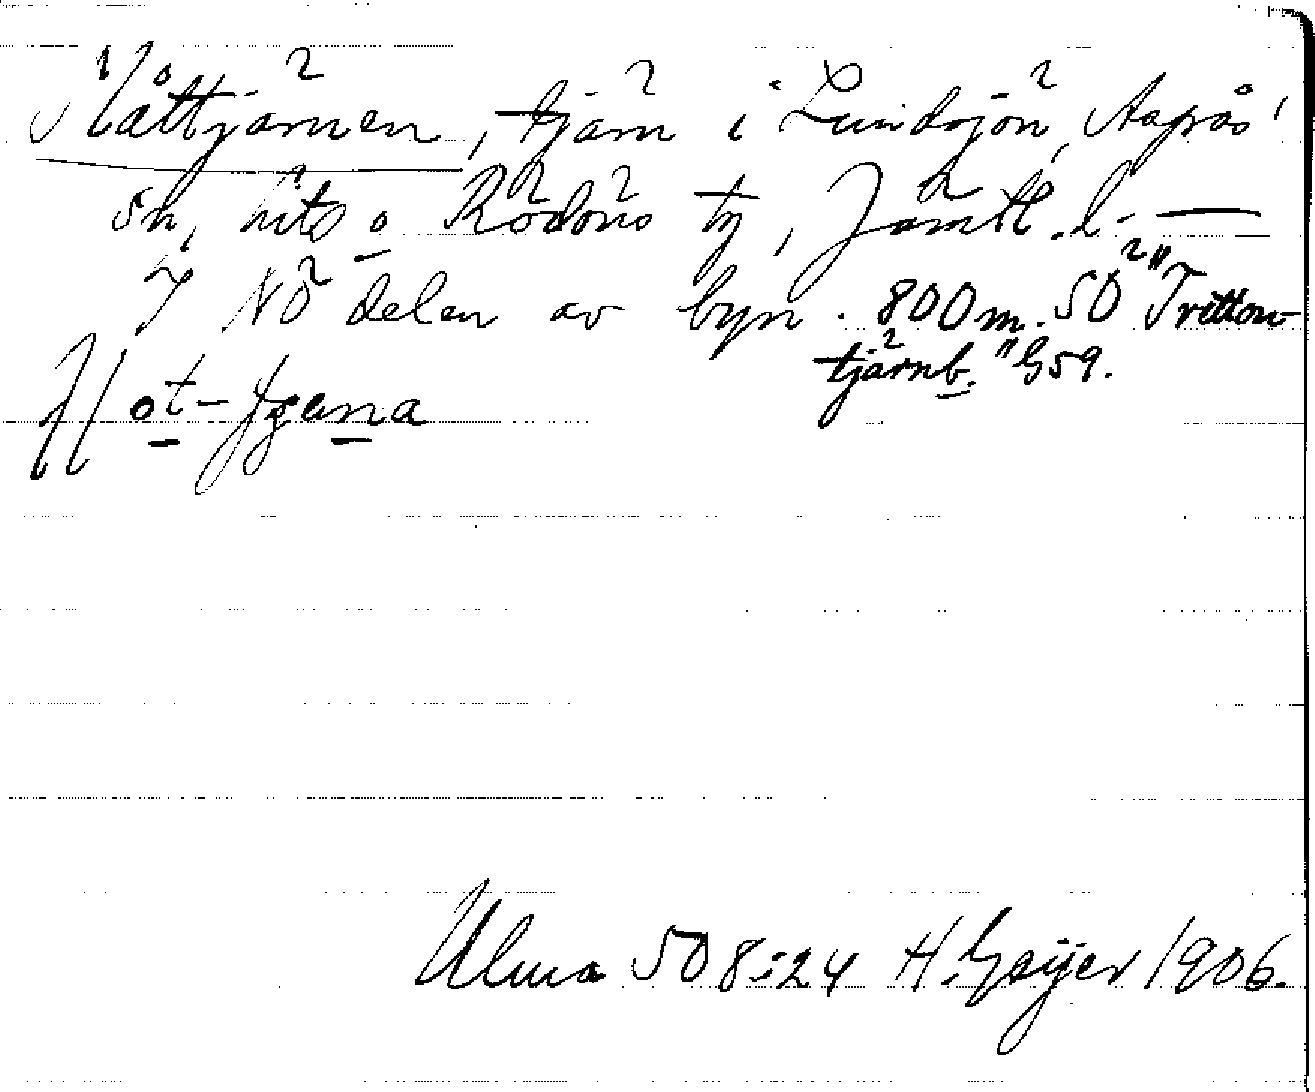 Slåttjärnen, tjärn i Lundsjön, Aspås
sn, Hits o Rödöns tg, Jämtl. l. —
I NÖ delen av byn. 800 m. SO "Tritton-
tjärnb." G59.
ot-
Ulma 508:24 H. Geijer 1906.